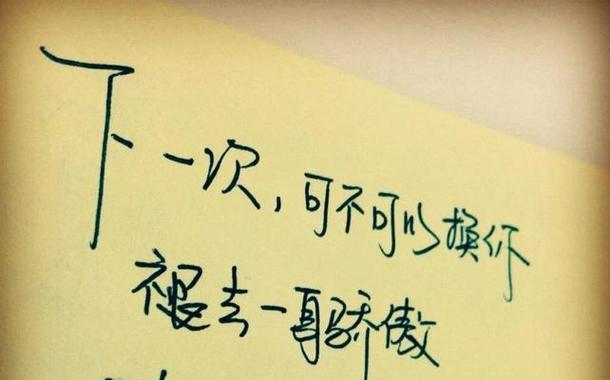 下一次,可不可以换你
褪去一身骄傲